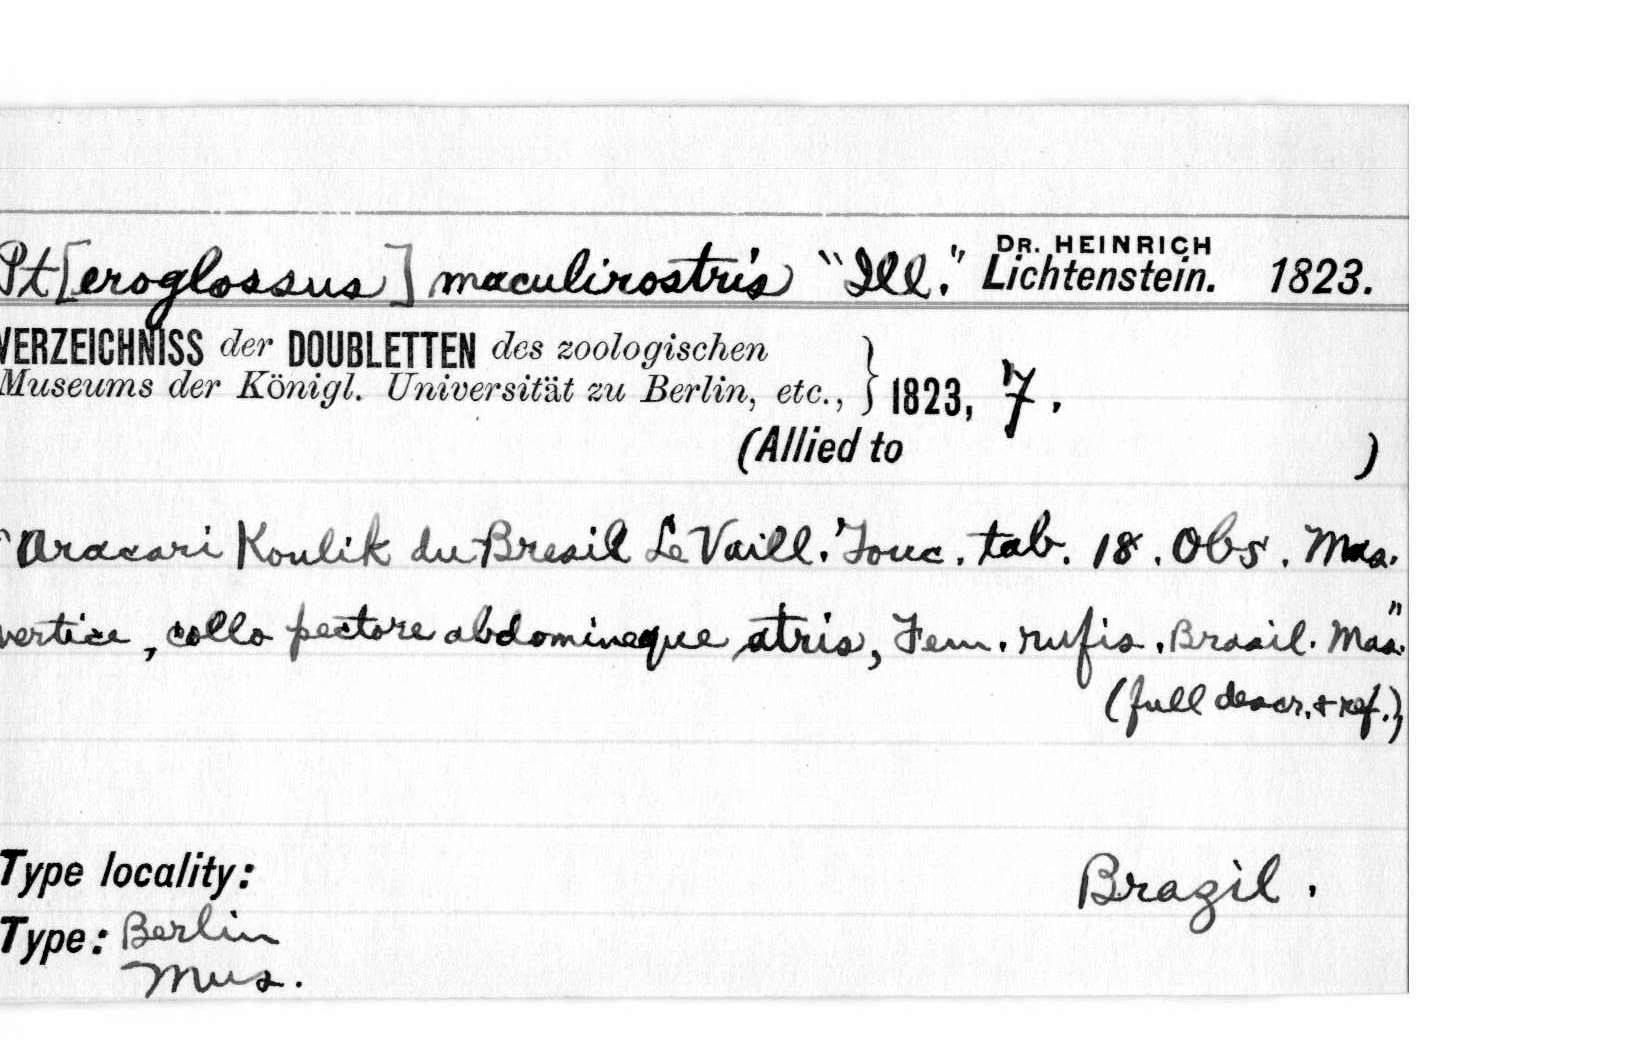 Pt[eroglossus] maculirostris "Ill." DR. HEINRICH Lichtenstein. 1823.
VERZEICHNISS der DOUBLETTEN des zoologischen
Museums der Königl. Universität zu Berlin, etc., } 1823, 7.
(Allied to )
"Aracari Koulik du Bresil Le Vaill. Touc. tab. 18. Obs. Mas.
vertice, collo pectore abdomineque atris, Fem. rufis. Brasil. Mas."
(full descr. & ref.)
Type locality: Brazil.
Type: Berlin
Mus.